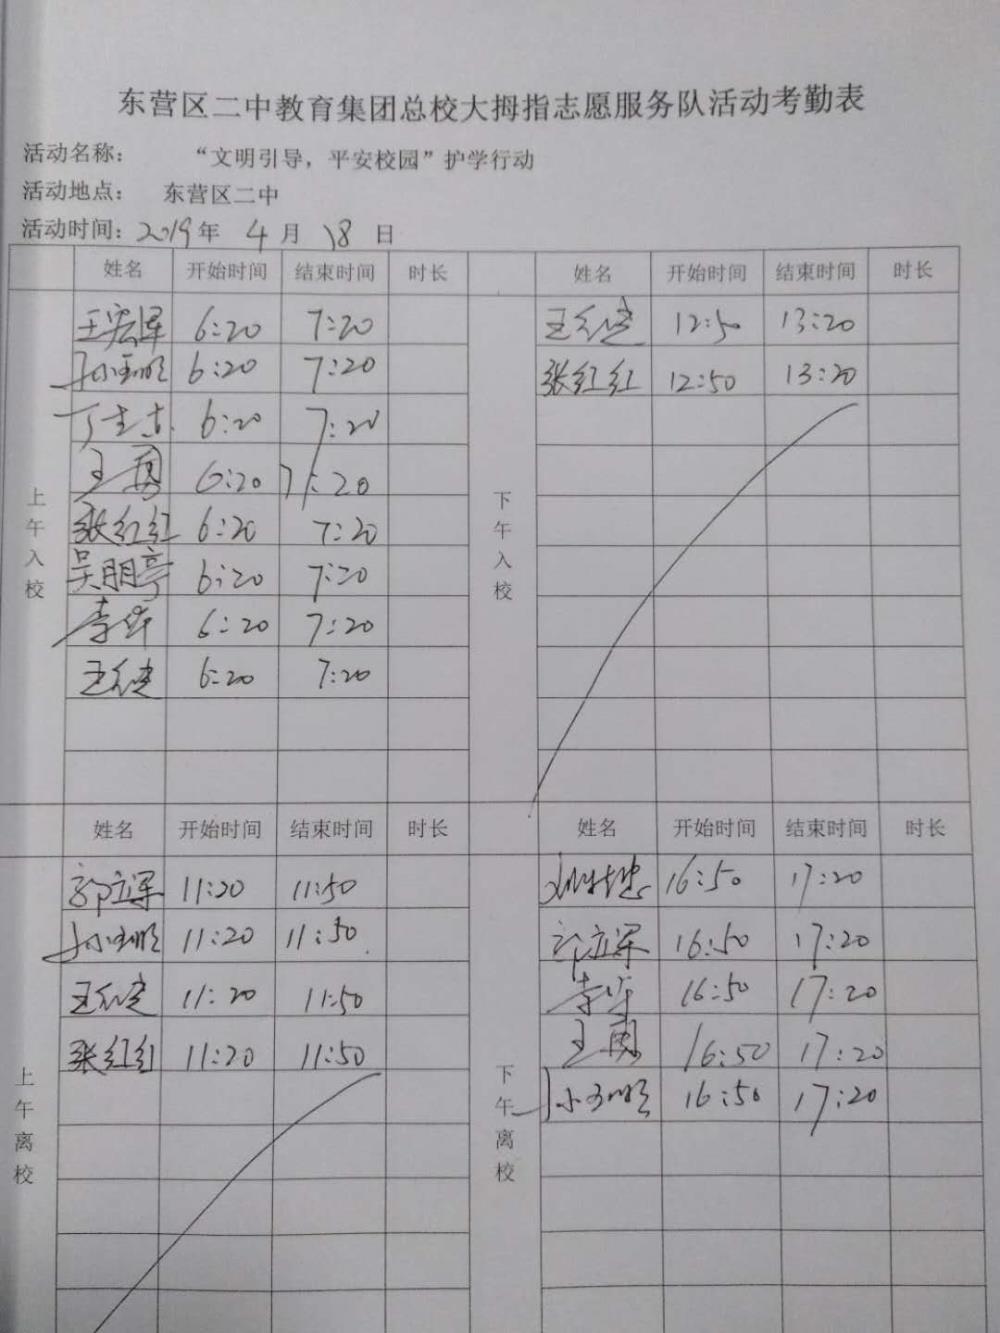 东营区二中教育集团总校大拇指志愿服务队活动考勤表
活动名称： “文明引导，平安校园”护学行动
活动地点： 东营区二中
活动时间：2019年 4月 18日
姓名 开始时间 结束时间 时长 姓名 开始时间 结束时间 时长
上午入校
王宏军 6:20 7:20
6:20 7:20
6:20 7:20
王勇 6:20 7:20
张红红 6:20 7:20
吴朋亭 6:20 7:20
李华 6:20 7:20
6:20 7:20
下午入校
12:50 13:20
张红红 12:50 13:20
姓名 开始时间 结束时间 时长 姓名 开始时间 结束时间 时长
上午离校
郭立军 11:20 11:50
11:20 11:50
11:20 11:50
张红红 11:20 11:50
下午离校
16:50 17:20
郭立军 16:50 17:20
李华 16:50 17:20
王勇 16:50 17:20
16:50 17:20